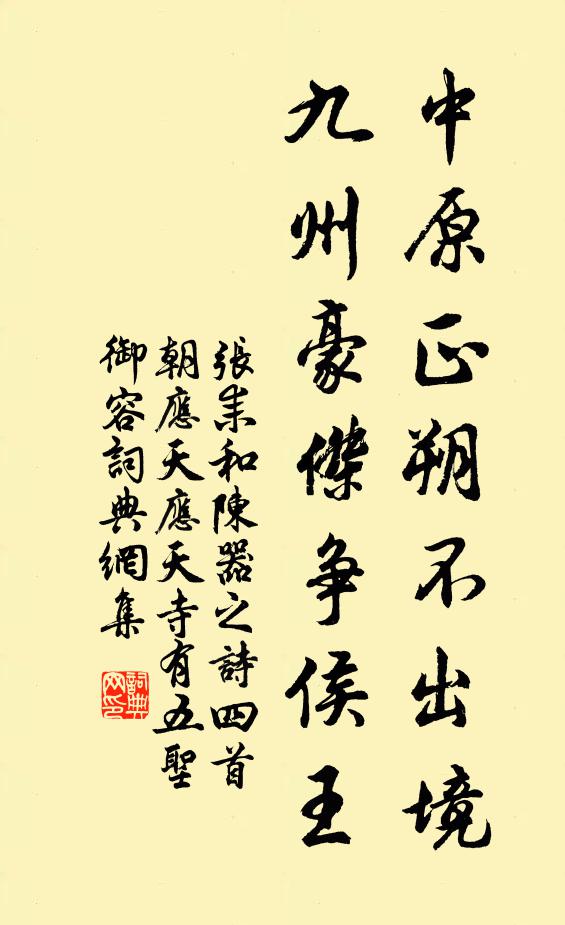 中原正朔不出境
九州豪傑争侯王
張耒和陳器之詩四首
朝應天應天寺有五聖
御容詞典網集
詞典網印